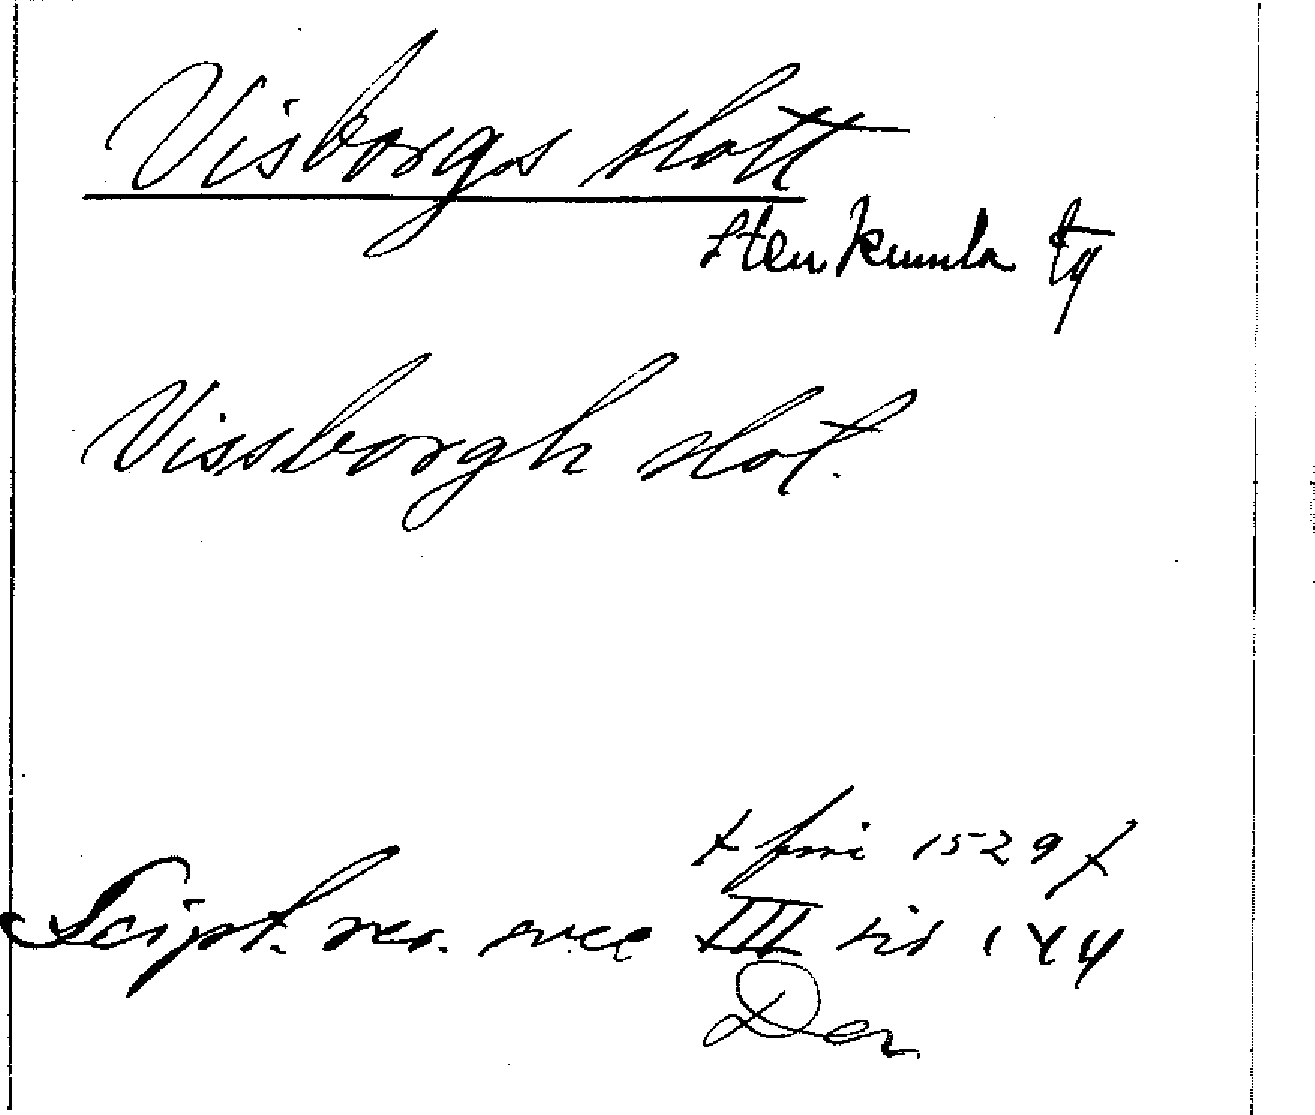 Visborgs slott
Stenkumla tg
Vissborgh slot.
+ före 1529 +
Scipt. rer. svec III sid 144
Den